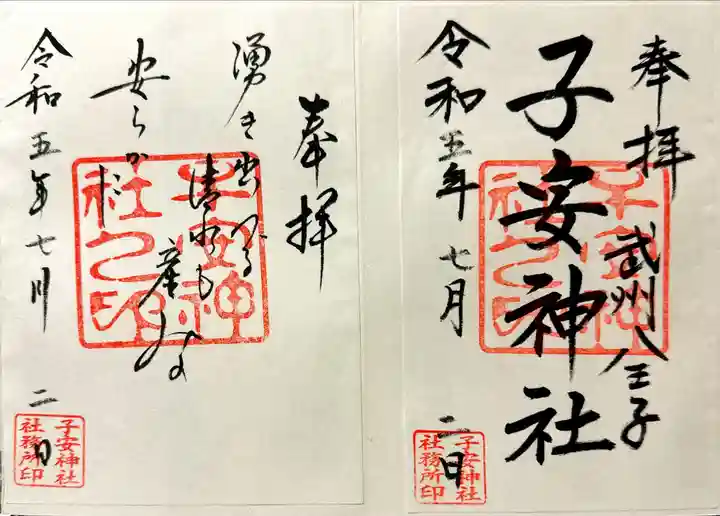 奉拝
武州八王子
子安神社
令和五年七月二日
子安神社之印
子安神社
社務所印
奉拝
湧き出づる
清水も
産みも
安らかに
令和五年七月二日
子安神社之印
子安神社
社務所印